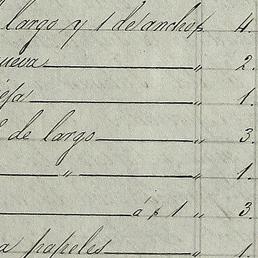 largo y 1 de ancho $ 4.
nuevas " 2.
" 1.
de largo " 3.
" " 1.
á $ 1 " 3.
a papeles " 1.